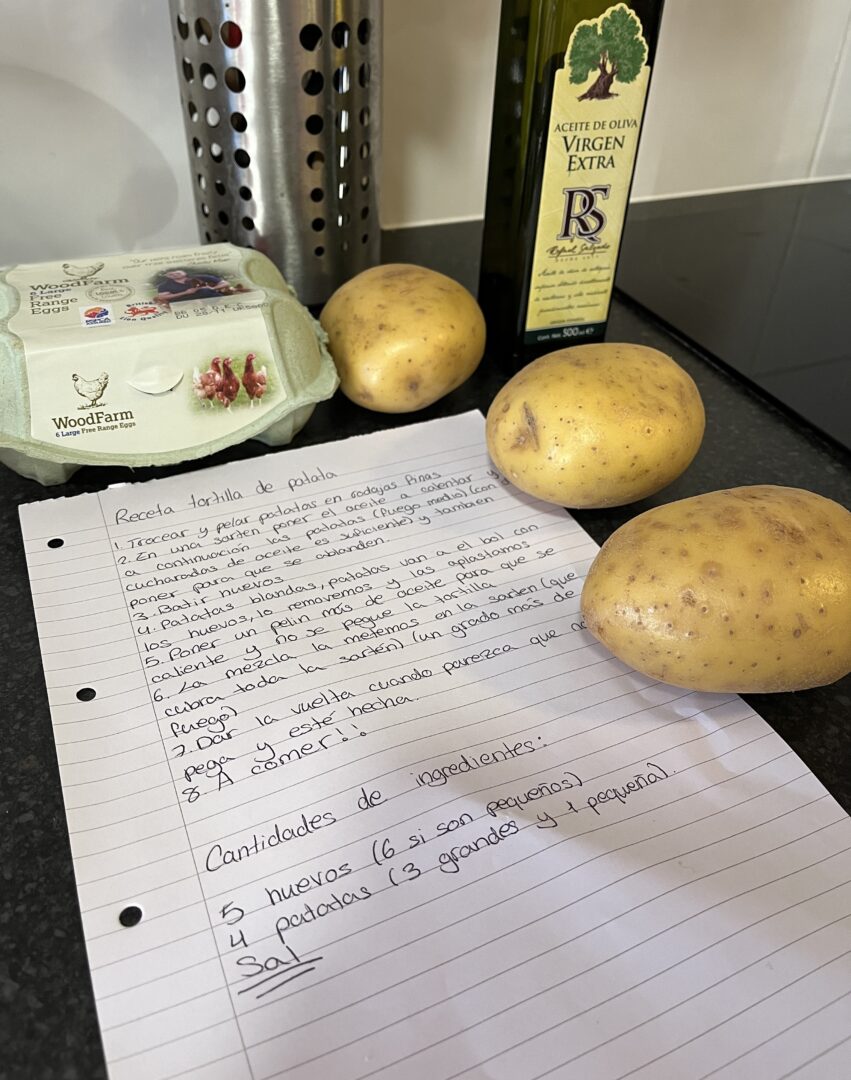 ACEITE DE OLIVA
VIRGEN
EXTRA
RS
Rafael Salgado
500 ml e
WoodFarm
6 Large
Free
Range
Eggs
WoodFarm
6 Large Free Range Eggs
Receta tortilla de patata
1. Trocear y pelar patatas en rodajas finas
2. En una sartén poner el aceite a calentar y
a continuación las patatas (fuego medio) (con
cucharadas de aceite es suficiente) y también
poner para que se ablanden.
3. Batir huevos
4. Patatas blandas, patatas van a el bol con
los huevos, lo removemos y las aplastamos
5. Poner un pelín más de aceite para que se
caliente y no se pegue la tortilla
6. La mezcla la metemos en la sartén (que
cubra toda la sartén) (un grado más de
fuego)
7. Dar la vuelta cuando parezca que no
pega y esté hecha.
8 A comer!!
Cantidades de ingredientes:
5 huevos (6 si son pequeños)
4 patatas (3 grandes y 1 pequeña).
Sal